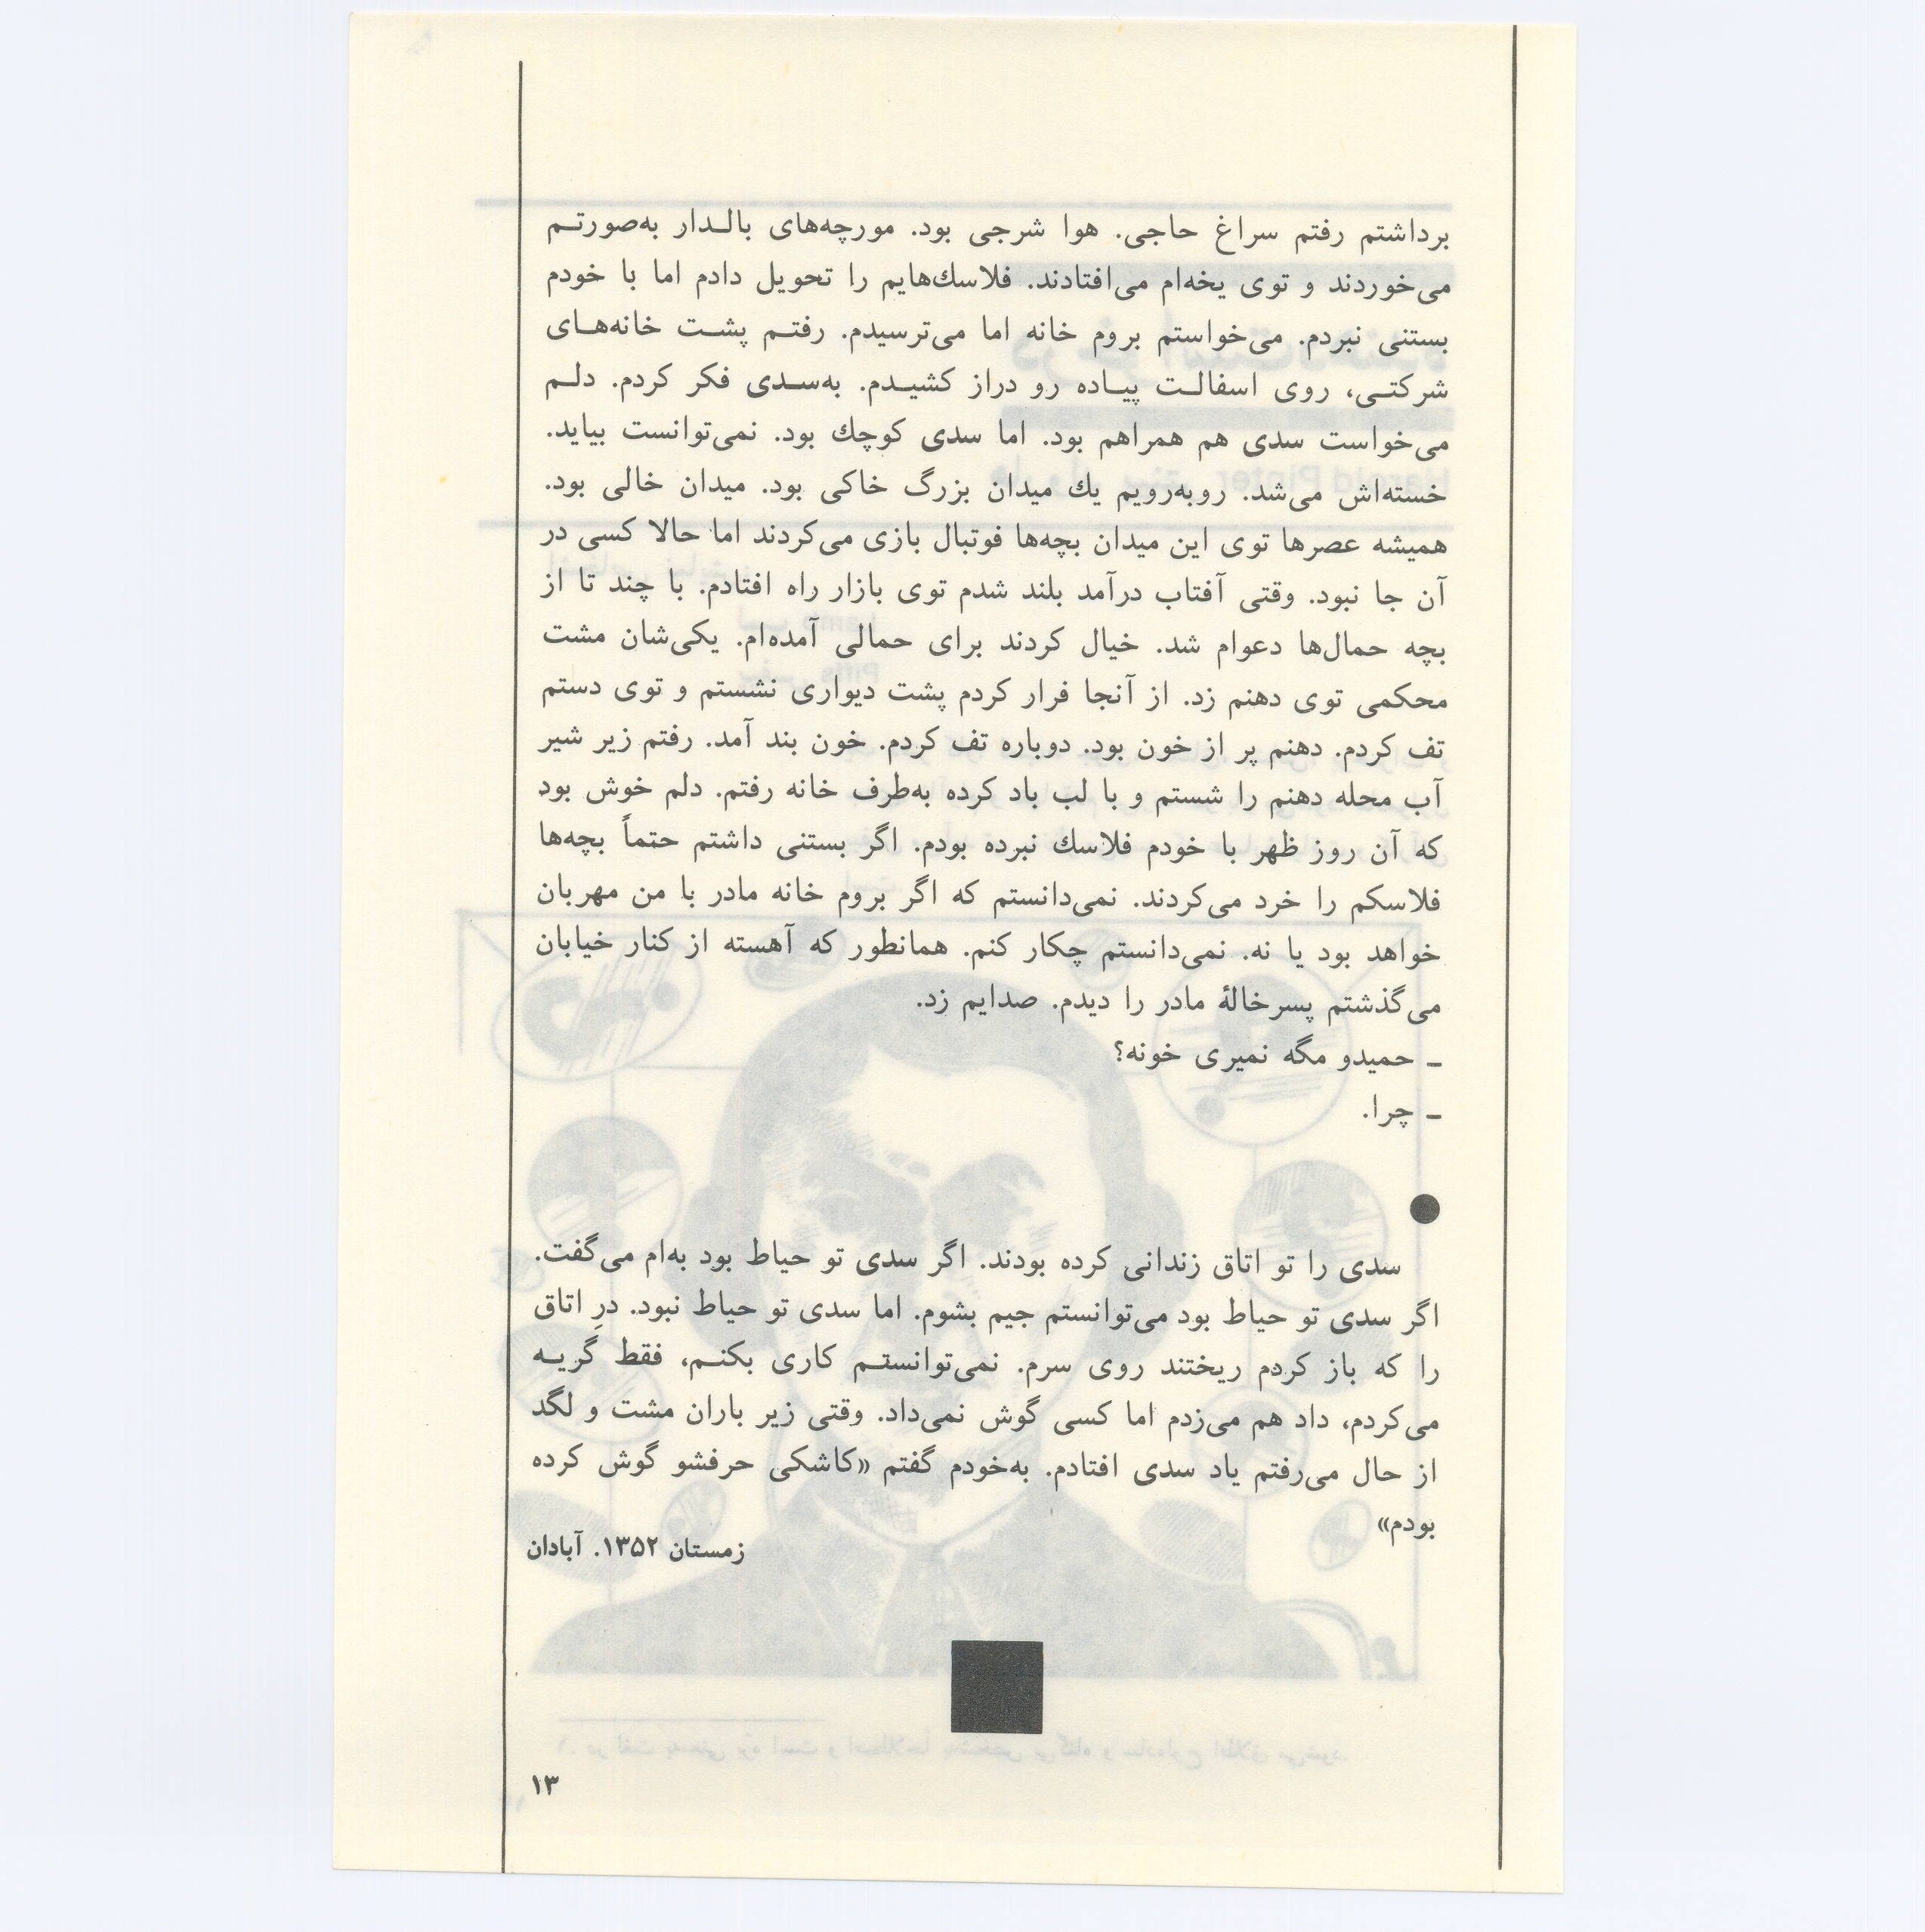 برداشتم رفتم سراغ حاجی. هوا شرجی بود. مورچه‌های بالـدار به‌صورتـم
می‌خوردند و توی یخه‌ام می‌افتادند. فلاسك‌هایم را تحویل دادم اما با خودم
بستنی نبردم. می‌خواستم بروم خانه اما می‌ترسیدم. رفتـم پشـت خانه‌هـای
شرکتـی، روی اسفالـت پیـاده رو دراز کشیـدم. به‌سـدی فکر کردم. دلـم
می‌خواست سدی هم همراهم بود. اما سدی کوچك بود. نمی‌توانست بیاید.
خسته‌اش می‌شد. روبه‌رویم یك میدان بزرگ خاکی بود. میدان خالی بود.
همیشه عصرها توی این میدان بچه‌ها فوتبال بازی می‌کردند اما حالا کسی در
آن جا نبود. وقتی آفتاب درآمد بلند شدم توی بازار راه افتادم. با چند تا از
بچه حمال‌ها دعوام شد. خیال کردند برای حمالی آمده‌ام. یکی‌شان مشت
محکمی توی دهنم زد. از آنجا فرار کردم پشت دیواری نشستم و توی دستم
تف کردم. دهنم پر از خون بود. دوباره تف کردم. خون بند آمد. رفتم زیر شیر
آب محله دهنم را شستم و با لب باد کرده به‌طرف خانه رفتم. دلم خوش بود
که آن روز ظهر با خودم فلاسك نبرده بودم. اگر بستنی داشتم حتماً بچه‌ها
فلاسکم را خرد می‌کردند. نمی‌دانستم که اگر بروم خانه مادر با من مهربان
خواهد بود یا نه. نمی‌دانستم چکار کنم. همانطور که آهسته از کنار خیابان
می‌گذشتم پسرخالهٔ مادر را دیدم. صدایم زد.
ـ حمیدو مگه نمیری خونه؟
ـ چرا.
سدی را تو اتاق زندانی کرده بودند. اگر سدی تو حیاط بود به‌ام می‌گفت.
اگر سدی تو حیاط بود می‌توانستم جیم بشوم. اما سدی تو حیاط نبود. درِ اتاق
را که باز کردم ریختند روی سرم. نمی‌توانستـم کاری بکنـم، فقط گریـه
می‌کردم، داد هم می‌زدم اما کسی گوش نمی‌داد. وقتی زیر باران مشت و لگد
از حال می‌رفتم یاد سدی افتادم. به‌خودم گفتم «کاشکی حرفشو گوش کرده
بودم»
زمستان ۱۳۵۲. آبادان
۱۳